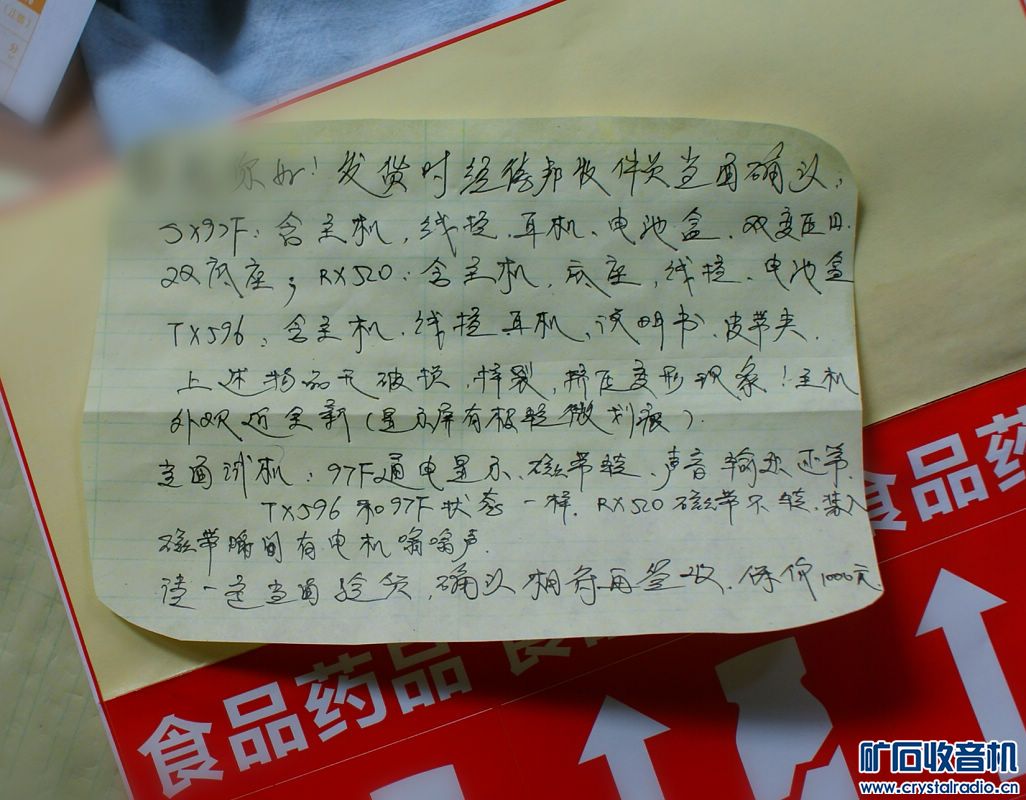 你好！发货时经德邦收件员当面确认：
JX97F：含主机，线控、耳机、电池盒、双变压用
双底座；RX520：含主机，底座，线控、电池盒
TX596：含主机、线控耳机、说明书、皮带夹.
上述物品无破损，摔裂，挤压变形现象！主机
外观近全新（显示屏有极轻微划痕）.
当面试机：97F通电显示、磁带转、声音输出正常.
TX596和97F状态一样. RX520磁带不转. 装入
磁带瞬间有电机嗡嗡声.
请一定当面验货，确认相符再签收. 保价1000元
食品药品
食品
食品药品
矿石收音机
www.crystalradio.cn